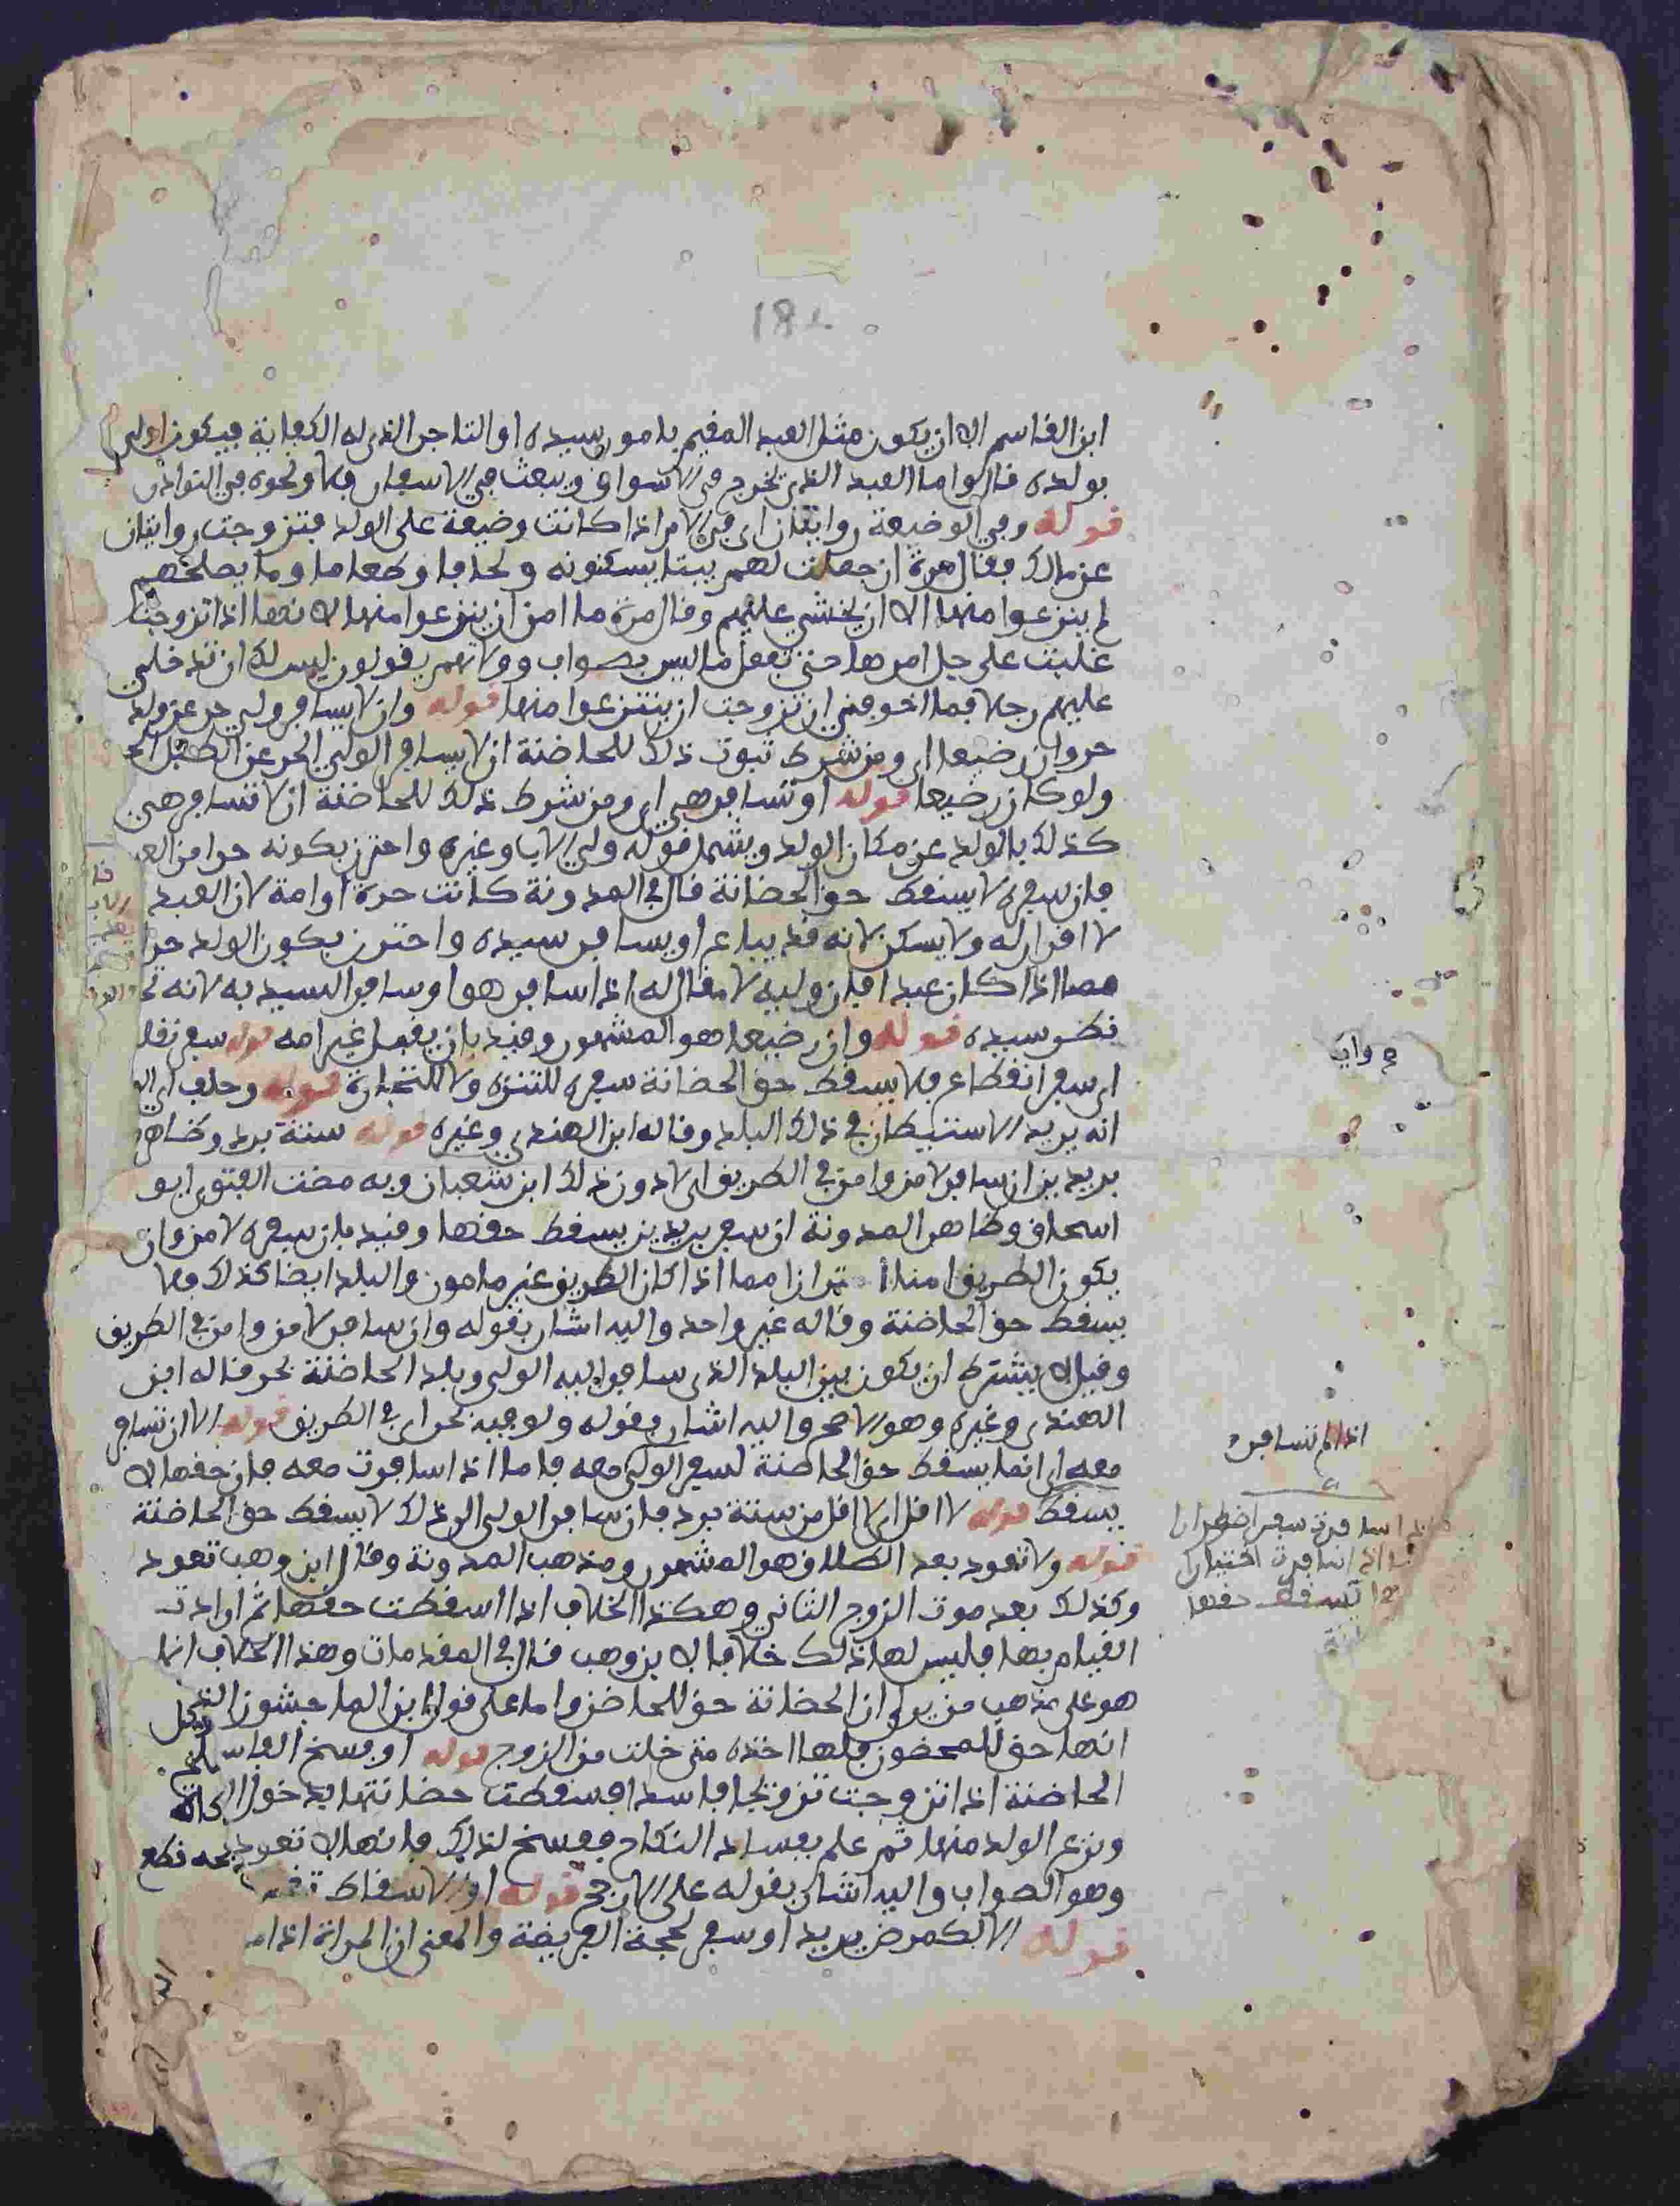 182
ابن القاسم الا ان يكون مثل العبد المقيم بامور سيده او التاجر الذى له الكفاية فيكون اولى
بولده قال واما العبد الذى يخرج فى الاسواق ويبعث فى الاسفار فلا ونحوه فى النوادر
قوله وفى الوضيعة روايتان اى فى الام اذا كانت وضيعة على الولد فتزوجت روايتان
عن مالك فقال مرة ان جعلت لهم بيتا يسكنونه ولحافا وطعاما وما يصلحهم
لم ينزعوا منها الا ان يخشى عليهم وقال مرة ما امن ان ينزعوا منها لانها اذا تزوجت
غلبت على جل امرها حتى تفعل ما ليس بصواب وولاتهم يقولون ليس لك ان تدخلى
عليهم رجلا فما اخوفنى ان تزوجت ان ينتزعوا منها قوله وان لا يسافر ولى حر عن ولد
حر وان رضيعا اى ومن شرط ثبوت ذلك للحاضنة ان لا يسافر الولى الحر عن الطفل الحر
ولو كان رضيعا قوله او تسافر هى اى ومن شرط ذلك للحاضنة ان لا تسافر هى
كذلك بالولد عن مكان الولد ويشمل قوله ولى الاب وغيره واحترز بكونه حرا من العبد
فان سفره لا يسقط حق الحضانة قال فى المدونة كانت حرة او امة لان العبد
لا اقرار له ولا يسكن لانه قد يباع او يسافر سيده واحترز بكون الولد حرا
مما اذا كان عبدا فان وليه لا مقال له اذا سافر هو او سافر السيد به لانه تحت
نظر سيده قوله وان رضيعا هو المشهور وقيد بان يقبل غير امه قوله سفر نقلة
اى سفر انقطاع فلا يسقط حق الحضانة سفره للتنزه ولا للتجارة قوله وحلف اى
انه يريد الاستيطان فى ذلك البلد وقاله ابن الهندى وغيره قوله ستة برد وظاهرها
بريدين ان سافر لامن وامن فى الطريق اى لا دون ذلك ابن شعبان وبه مضت الفتوى ابو
اسحاق وظاهر المدونة ان سفر بريدين يسقط حقها وقيد بان سفره لامن وان
يكون الطريق امنا احترازا مما اذا كان الطريق غير مامون والبلد ايضا كذلك فلا
يسقط حق الحاضنة وقاله غير واحد واليه اشار بقوله وان سافر لامن وامن فى الطريق
وقيل لا يشترط ان يكون بين البلد الذى سافر اليه الولى وبلد الحاضنة بحر قاله ابن
الهندى وغيره وهو الاصح واليه اشار بقوله ولو فيه بحر اى فى الطريق قوله الا ان تسافر
معه اى انما يسقط حق الحاضنة لسفر الولى معه فاما اذا سافرت معه فان حقها لا
يسقط قوله لا اقل اى لا اقل من ستة برد فان سافر الولى الى ذلك لا يسقط حق الحاضنة
قوله ولا تعود بعد الطلاق هو المشهور ومذهب المدونة وقال ابن وهب تعود
وكذلك بعد موت الزوج الثانى وهكذا الخلاف اذا اسقطت حقها ثم ارادت
القيام بها فليس لها ذلك خلافا لابن وهب قال فى المقدمات وهذا الخلاف انما
هو على مذهب من يرى ان الحضانة حق للحاضن واما على قول ابن الماجشون
انها حق للمحضون فلها اخذه متى خلت من الزوج قوله او فسخ الفاسد
الحاضنة اذا تزوجت تزويجا فاسدا فسقطت حضانتها بدخول
ونزع الولد منها ثم علم بفساد النكاح ففسخ لذلك فانها لا تعود
وهو الصواب واليه اشار بقوله على الارجح قوله او الاسقاط
قوله الا لكمرض يريد او سفر لحجة الفريضة والمعنى ان المراة اذا
اذا لم تسافر
اذا سافرت سفر اضطرارا
اذا سافرت اختيارا
تسقط حقها